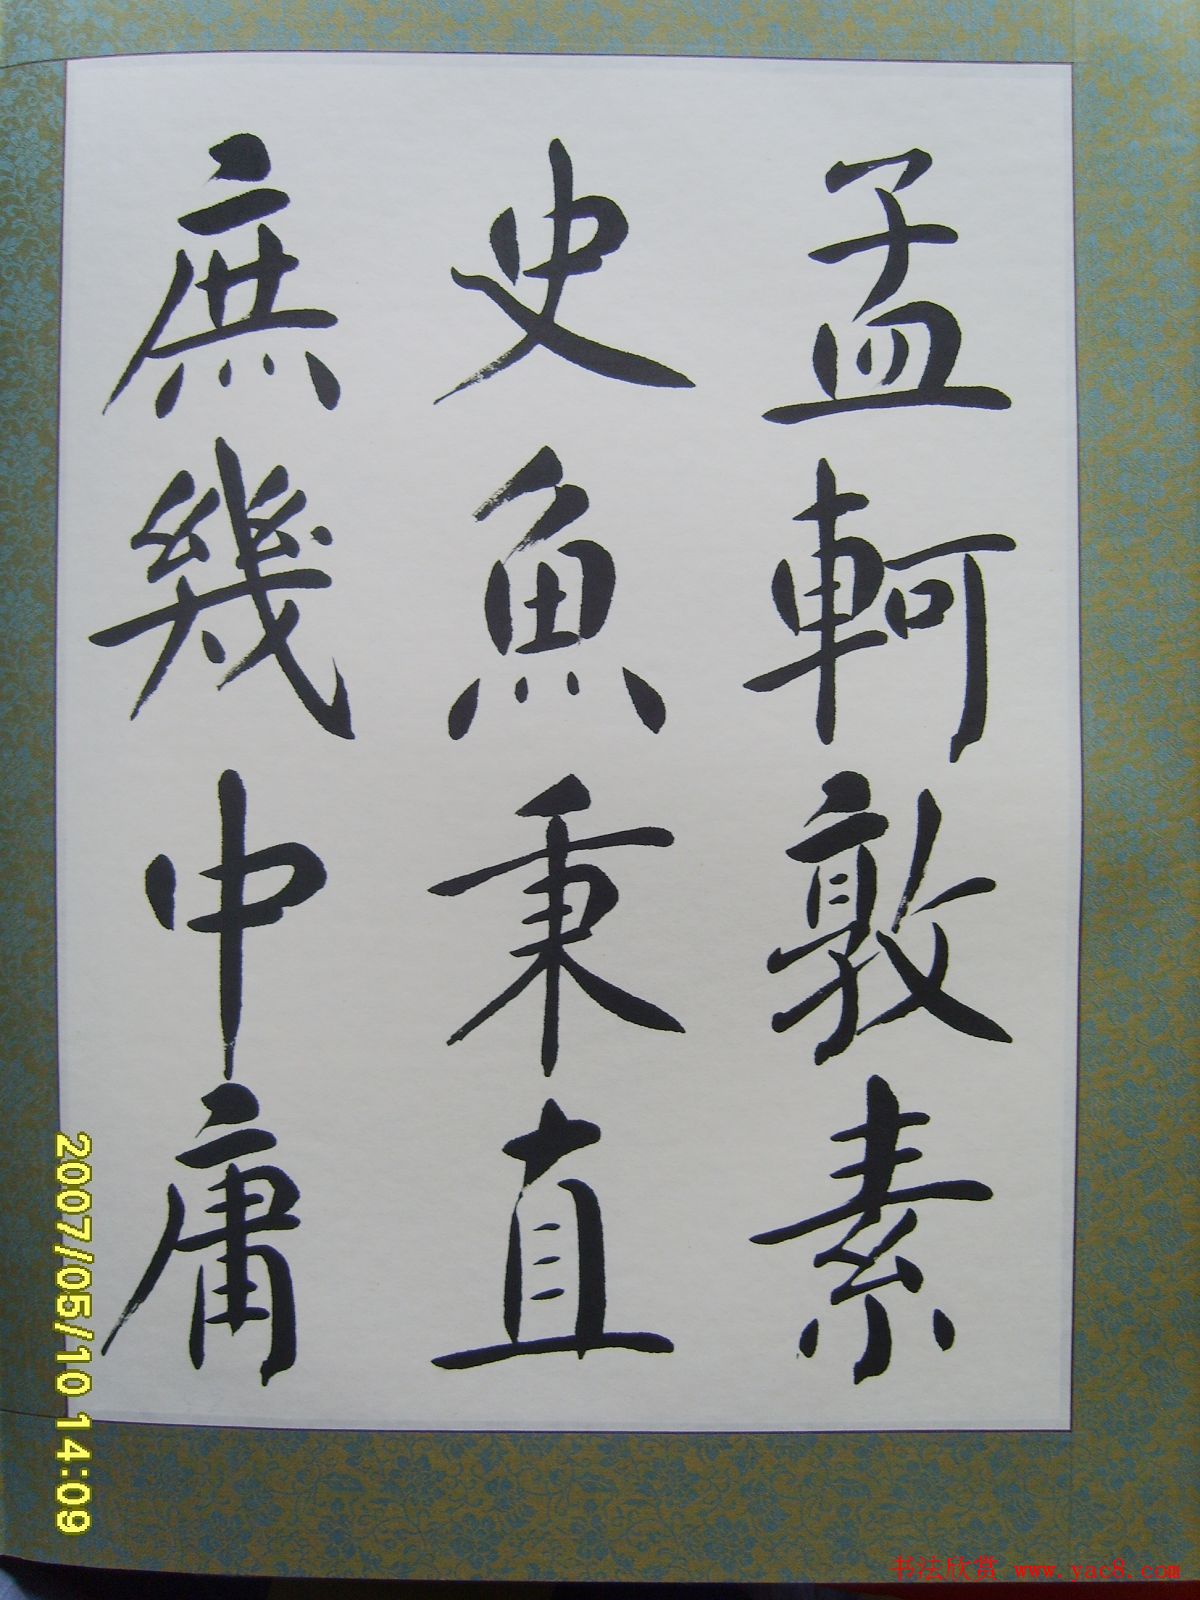 孟軻敦素
史魚秉直
庶幾中庸
2007/05/10 14:09
书法欣赏 www.yac8.com